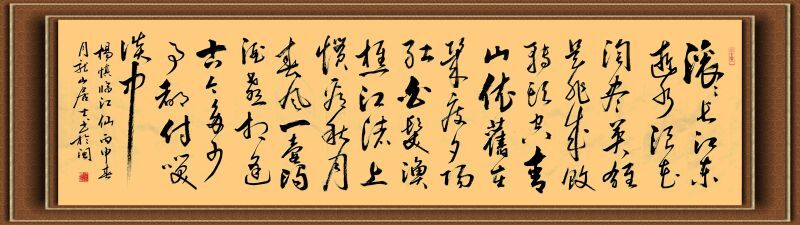 滚々长江东
逝水浪花
淘尽英雄
是非成败
转头空青
山依舊在
幾度夕阳
红白髮渔
樵江渚上
惯看秋月
春风一壶浊
酒喜相逢
古今多少
事都付笑
谈中
楊慎临江仙丙申春
月龙山居士书於闽